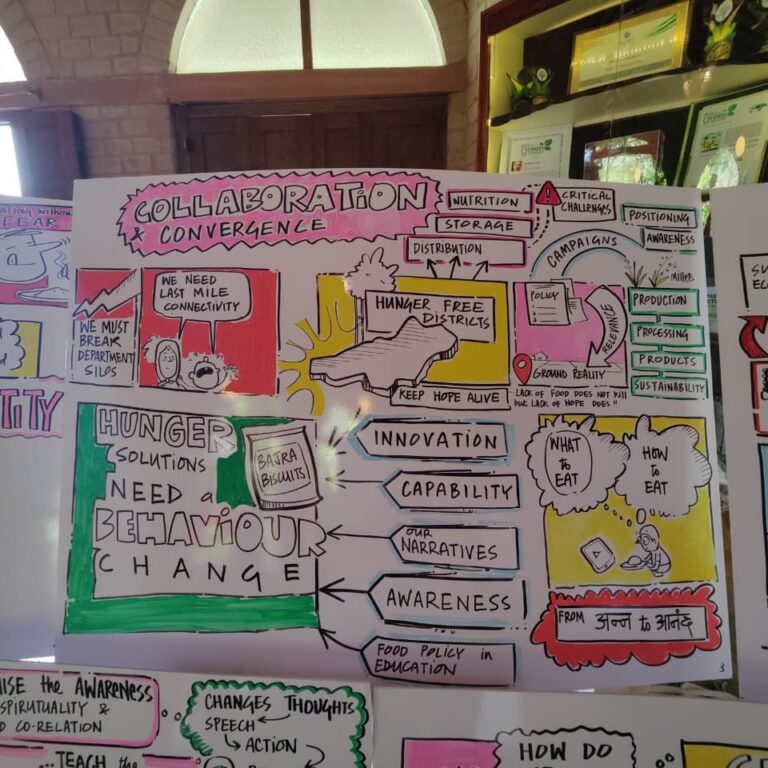 COLLABORATION
& CONVERGENCE
NUTRITION
STORAGE
DISTRIBUTION
CRITICAL
CHALLENGES
CAMPAIGNS
POSITIONING
AWARENESS
FEAR
WE MUST
BREAK
DEPARTMENT
SILOS
WE NEED
LAST MILE
CONNECTIVITY
HUNGER FREE
DISTRICTS
KEEP HOPE ALIVE
POLICY
RELEVANCE
GROUND REALITY
LACK OF FOOD DOES NOT KILL
but LACK OF HOPE DOES !!
Millets
PRODUCTION
PROCESSING
PRODUCTS
SUSTAINABILITY
HUNGER
SOLUTIONS
NEED a
BEHAVIOUR
CHANGE
BAJRA
BISCUITS
INNOVATION
CAPABILITY
OUR
NARRATIVES
AWARENESS
FOOD POLICY in
EDUCATION
WHAT
to
EAT
HOW
to
EAT
FROM अन्न to आनंद
the AWARENESS
SPIRUTUALITY &
CO-RELATION
...TEACH the
CHANGES THOUGHTS
SPEECH
ACTION
HOW DO
green